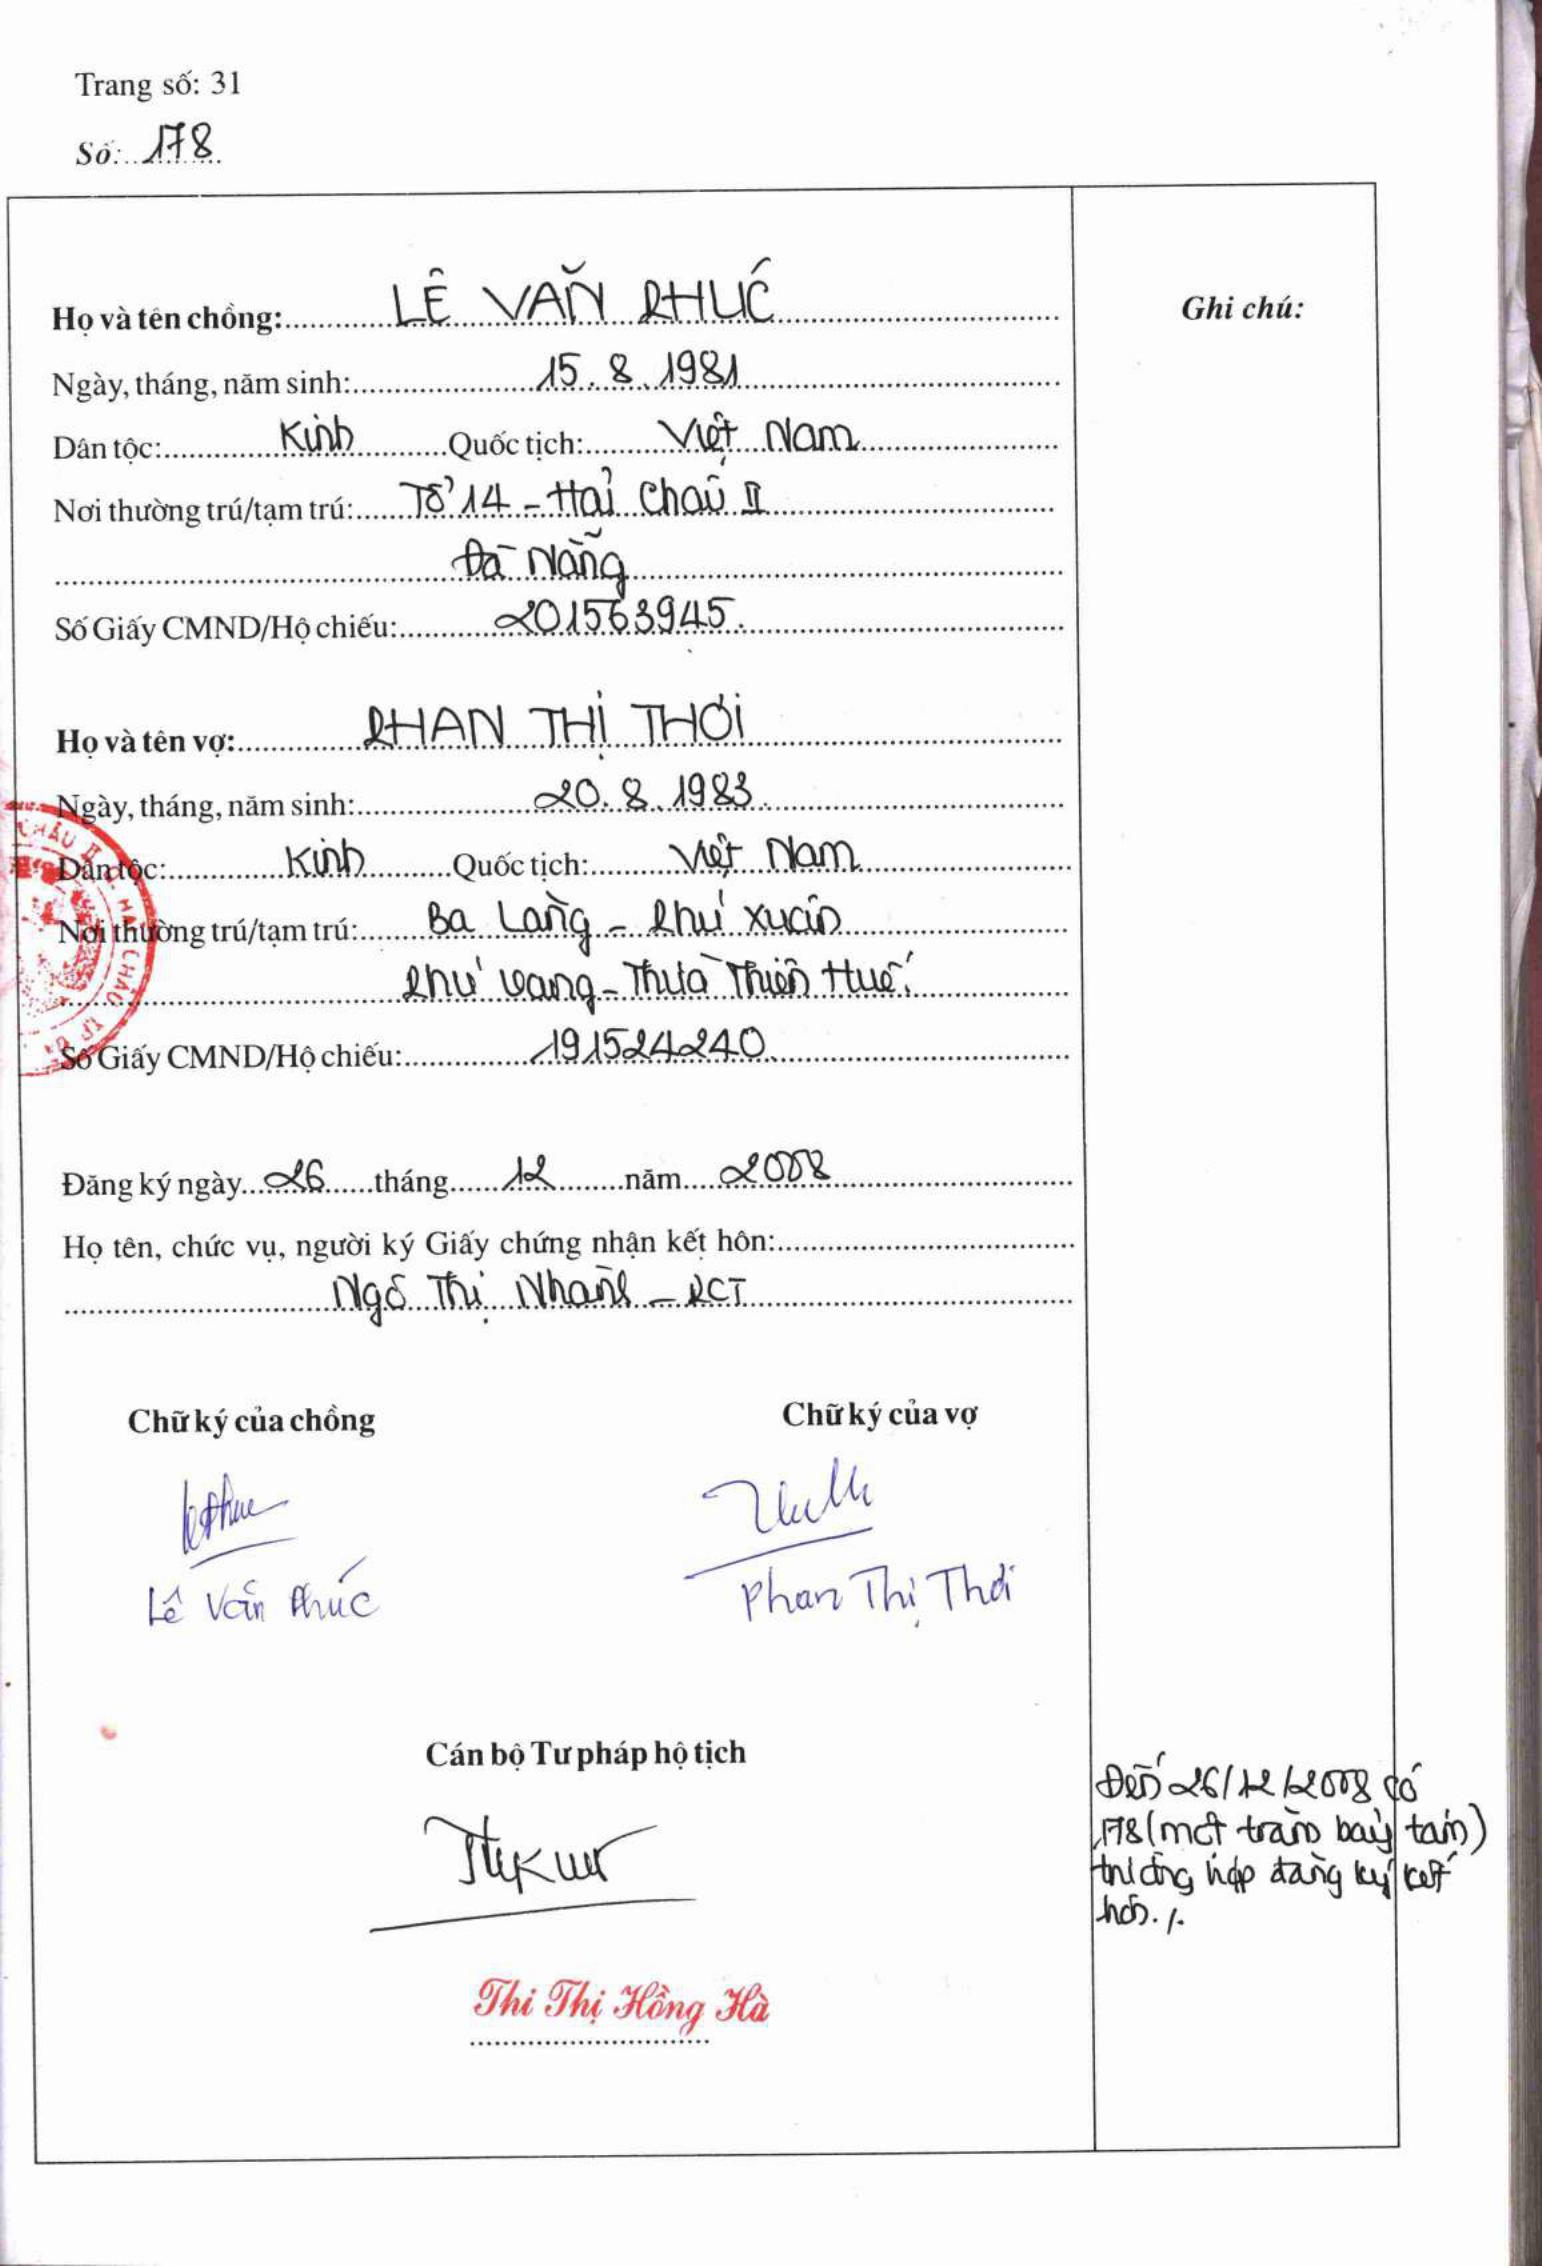 Trang số: 31
Số: 178
Họ và tên chồng: LÊ VĂN PHÚC
Ghi chú:
Ngày, tháng, năm sinh: 15.8.1981
Dân tộc: Kinh Quốc tịch: Việt Nam
Nơi thường trú/tạm trú: Tổ 14 - Hải Châu II
Đà Nẵng
Số Giấy CMND/Hộ chiếu: 201563945.
Họ và tên vợ: PHAN THỊ THƠI
Ngày, tháng, năm sinh: 20.8.1983
Dân tộc: Kinh Quốc tịch: Việt Nam
Nơi thường trú/tạm trú: Ba Lăng - Phú Xuân
Phú Vang - Thừa Thiên Huế.
Số Giấy CMND/Hộ chiếu: 191524240
Đăng ký ngày 26 tháng 12 năm 2008
Họ tên, chức vụ, người ký Giấy chứng nhận kết hôn:
Ngô Thị Nhành - PCT
Chữ ký của chồng Chữ ký của vợ
Lê Văn Phúc Phan Thị Thơi
Cán bộ Tư pháp hộ tịch
Đến 26/12/2008 có
178 (một trăm bảy tám)
trường hợp đăng ký kết
hôn./.
Thi Thị Hồng Hà